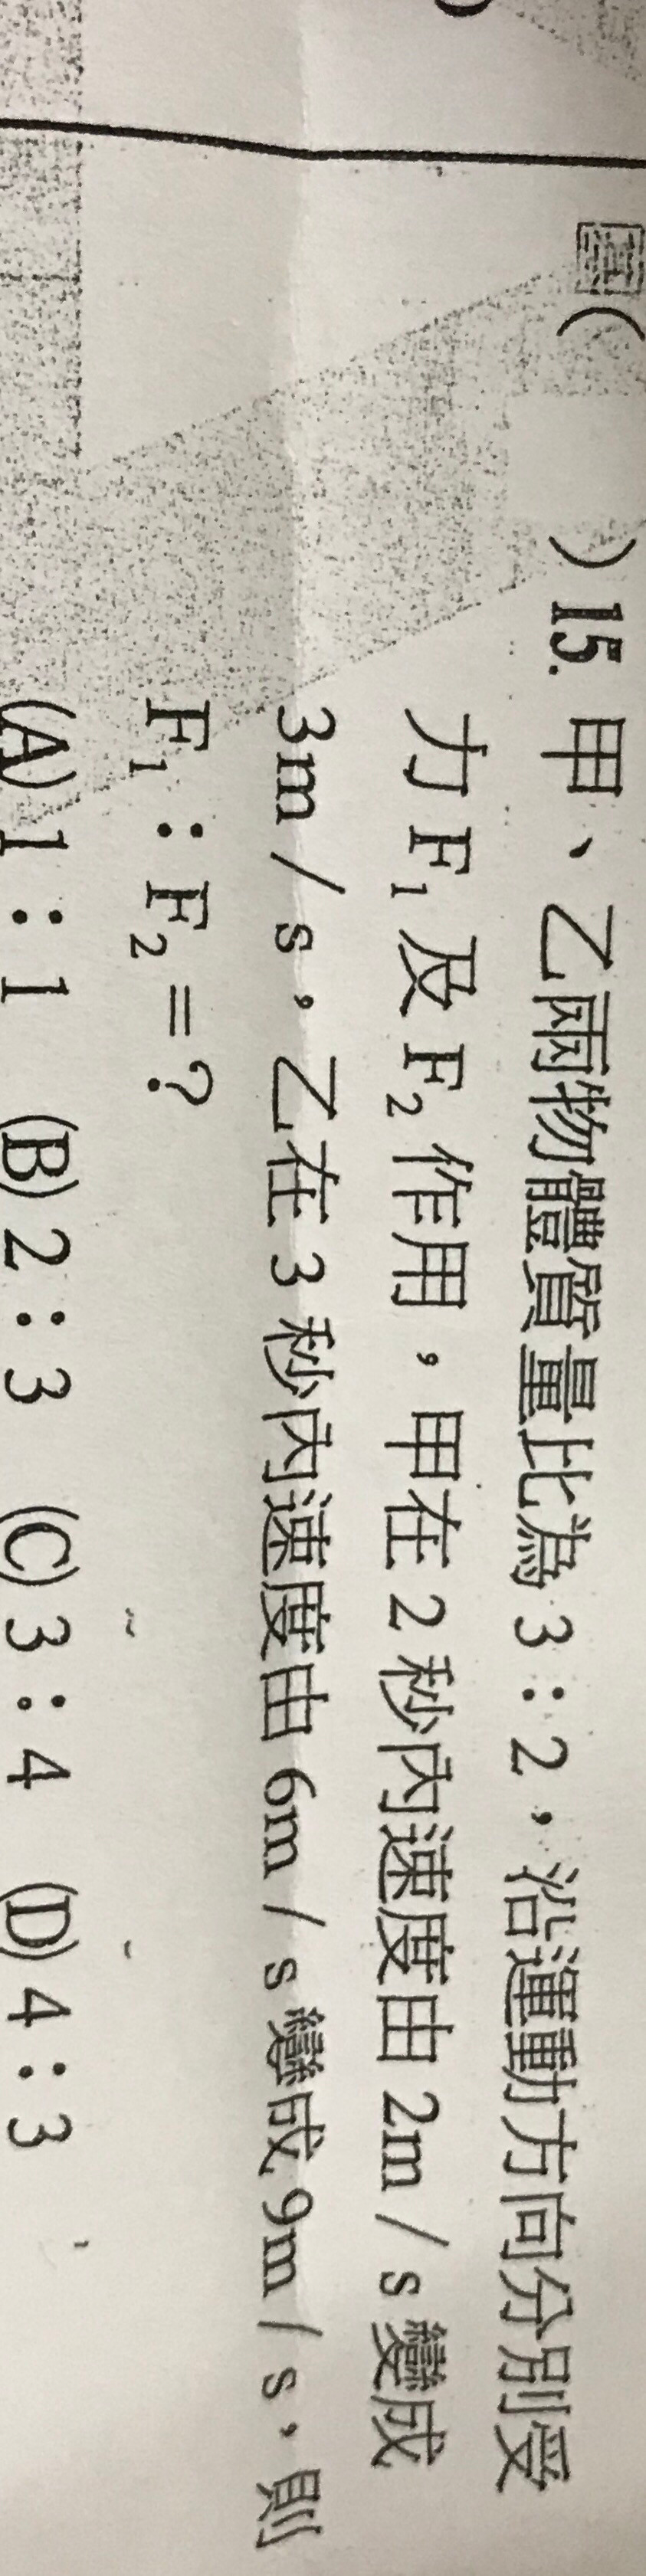 ( )15. 甲、乙兩物體質量比為 3：2，沿運動方向分別受
力 F₁ 及 F₂ 作用，甲在 2 秒內速度由 2m / s 變成
3m / s，乙在 3 秒內速度由 6m / s 變成 9m / s，則
F₁：F₂ =？
(A) 1：1 (B) 2：3 (C) 3：4 (D) 4：3